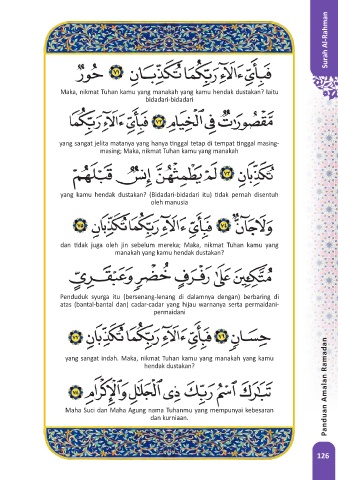 Surah Al-Rahman
فَبِأَيِّ ءَالَآءِ رَبِّكُمَا تُكَذِّبَانِ ٧١ حُورٌ
Maka, nikmat Tuhan kamu yang manakah yang kamu hendak dustakan? Iaitu
bidadari-bidadari
مَّقْصُورَٰتٌ فِى ٱلْخِيَامِ ٧٢ فَبِأَيِّ ءَالَآءِ رَبِّكُمَا
yang sangat jelita matanya yang hanya tinggal tetap di tempat tinggal masing-
masing; Maka, nikmat Tuhan kamu yang manakah
تُكَذِّبَانِ ٧٣ لَمْ يَطْمِثْهُنَّ إِنسٌ قَبْلَهُمْ
yang kamu hendak dustakan? (Bidadari-bidadari itu) tidak pernah disentuh
oleh manusia
وَلَا جَآنٌّ ٧٤ فَبِأَيِّ ءَالَآءِ رَبِّكُمَا تُكَذِّبَانِ ٧٥
dan tidak juga oleh jin sebelum mereka; Maka, nikmat Tuhan kamu yang
manakah yang kamu hendak dustakan?
مُتَّكِـِٔينَ عَلَىٰ رَفْرَفٍ خُضْرٍ وَعَبْقَرِىٍّ
Penduduk syurga itu (bersenang-lenang di dalamnya dengan) berbaring di
atas (bantal-bantal dan) cadar-cadar yang hijau warnanya serta permaidani-
permaidani
حِسَانٍ ٧٦ فَبِأَيِّ ءَالَآءِ رَبِّكُمَا تُكَذِّبَانِ ٧٧
yang sangat indah. Maka, nikmat Tuhan kamu yang manakah yang kamu
hendak dustakan?
تَبَٰرَكَ ٱسْمُ رَبِّكَ ذِى ٱلْجَلَٰلِ وَٱلْإِكْرَامِ ٧٨
Maha Suci dan Maha Agung nama Tuhanmu yang mempunyai kebesaran
dan kurniaan.
Panduan Amalan Ramadan
126